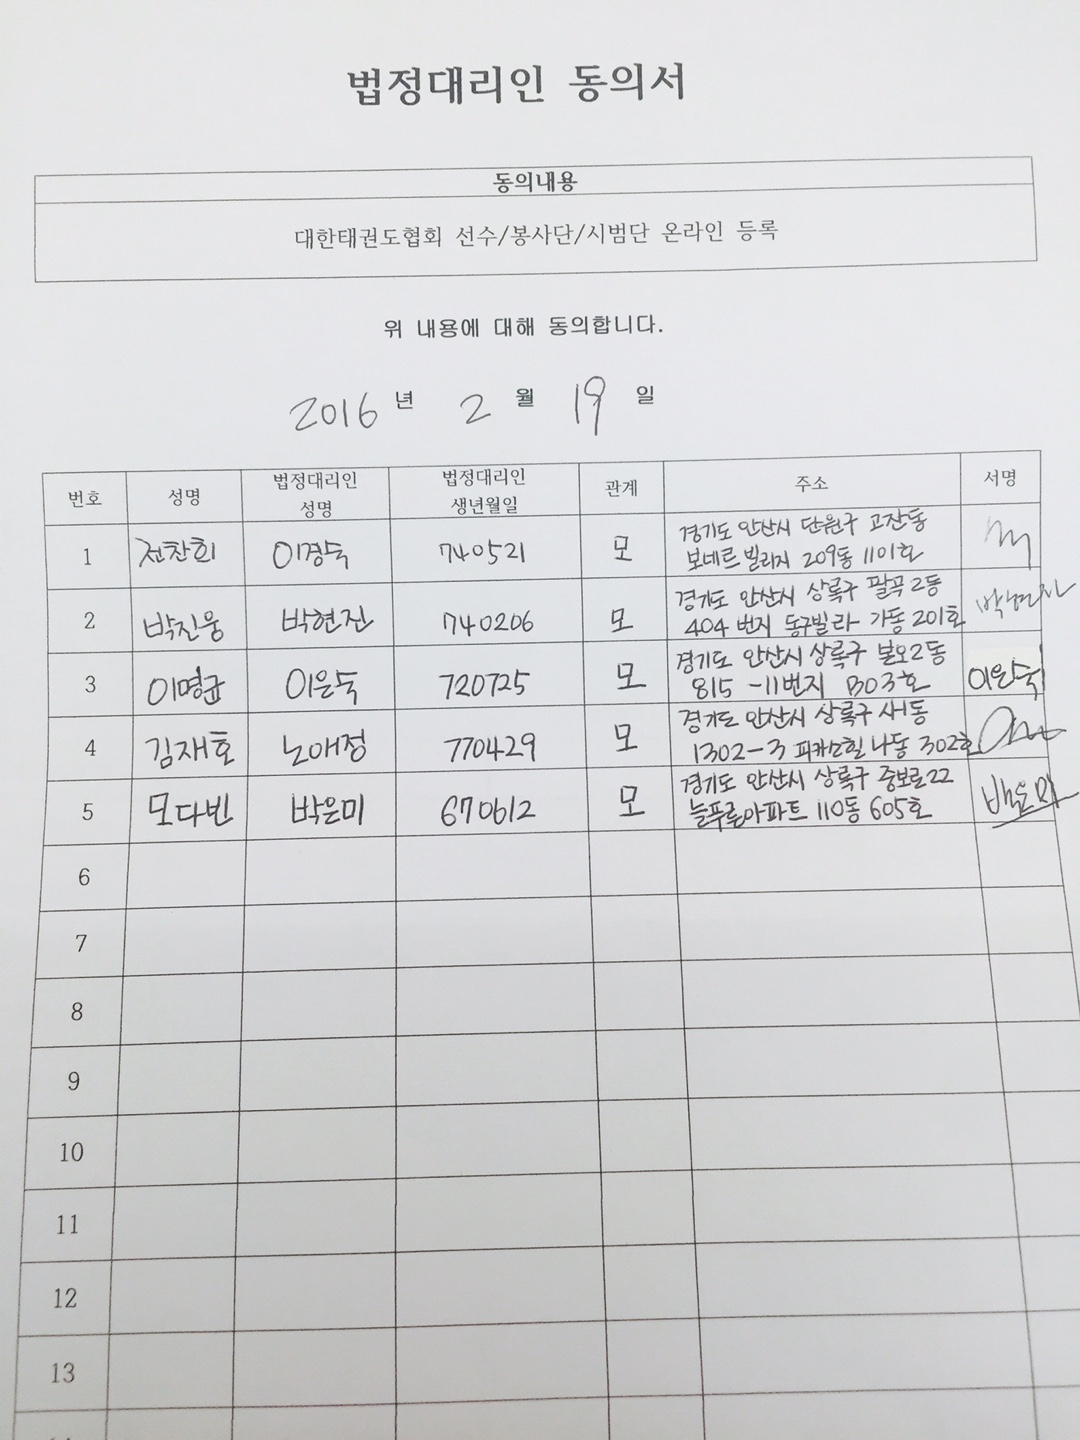 법정대리인 동의서
동의내용
대한태권도협회 선수/봉사단/시범단 온라인 등록
위 내용에 대해 동의합니다.
2016 년 2 월 19 일
번호 성명 법정대리인 성명 법정대리인 생년월일 관계 주소 서명
1 전찬희 이경숙 740521 모 경기도 안산시 단원구 고잔동
보네르빌리지 209동 1101호
2 박진웅 박현진 740206 모 경기도 안산시 상록구 팔곡2동
404 번지 동구빌라 가동 201호
3 이명균 이은숙 720725 모 경기도 안산시 상록구 본오2동 이은숙
815-11번지 B03호
4 김재호 노애정 770429 모 경기도 안산시 상록구 사1동
1302-3 피카소힐 나동 302호
5 모다빈 박은미 670612 모 경기도 안산시 상록구 중보로22 박은미
늘푸른아파트 110동 605호
6
7
8
9
10
11
12
13